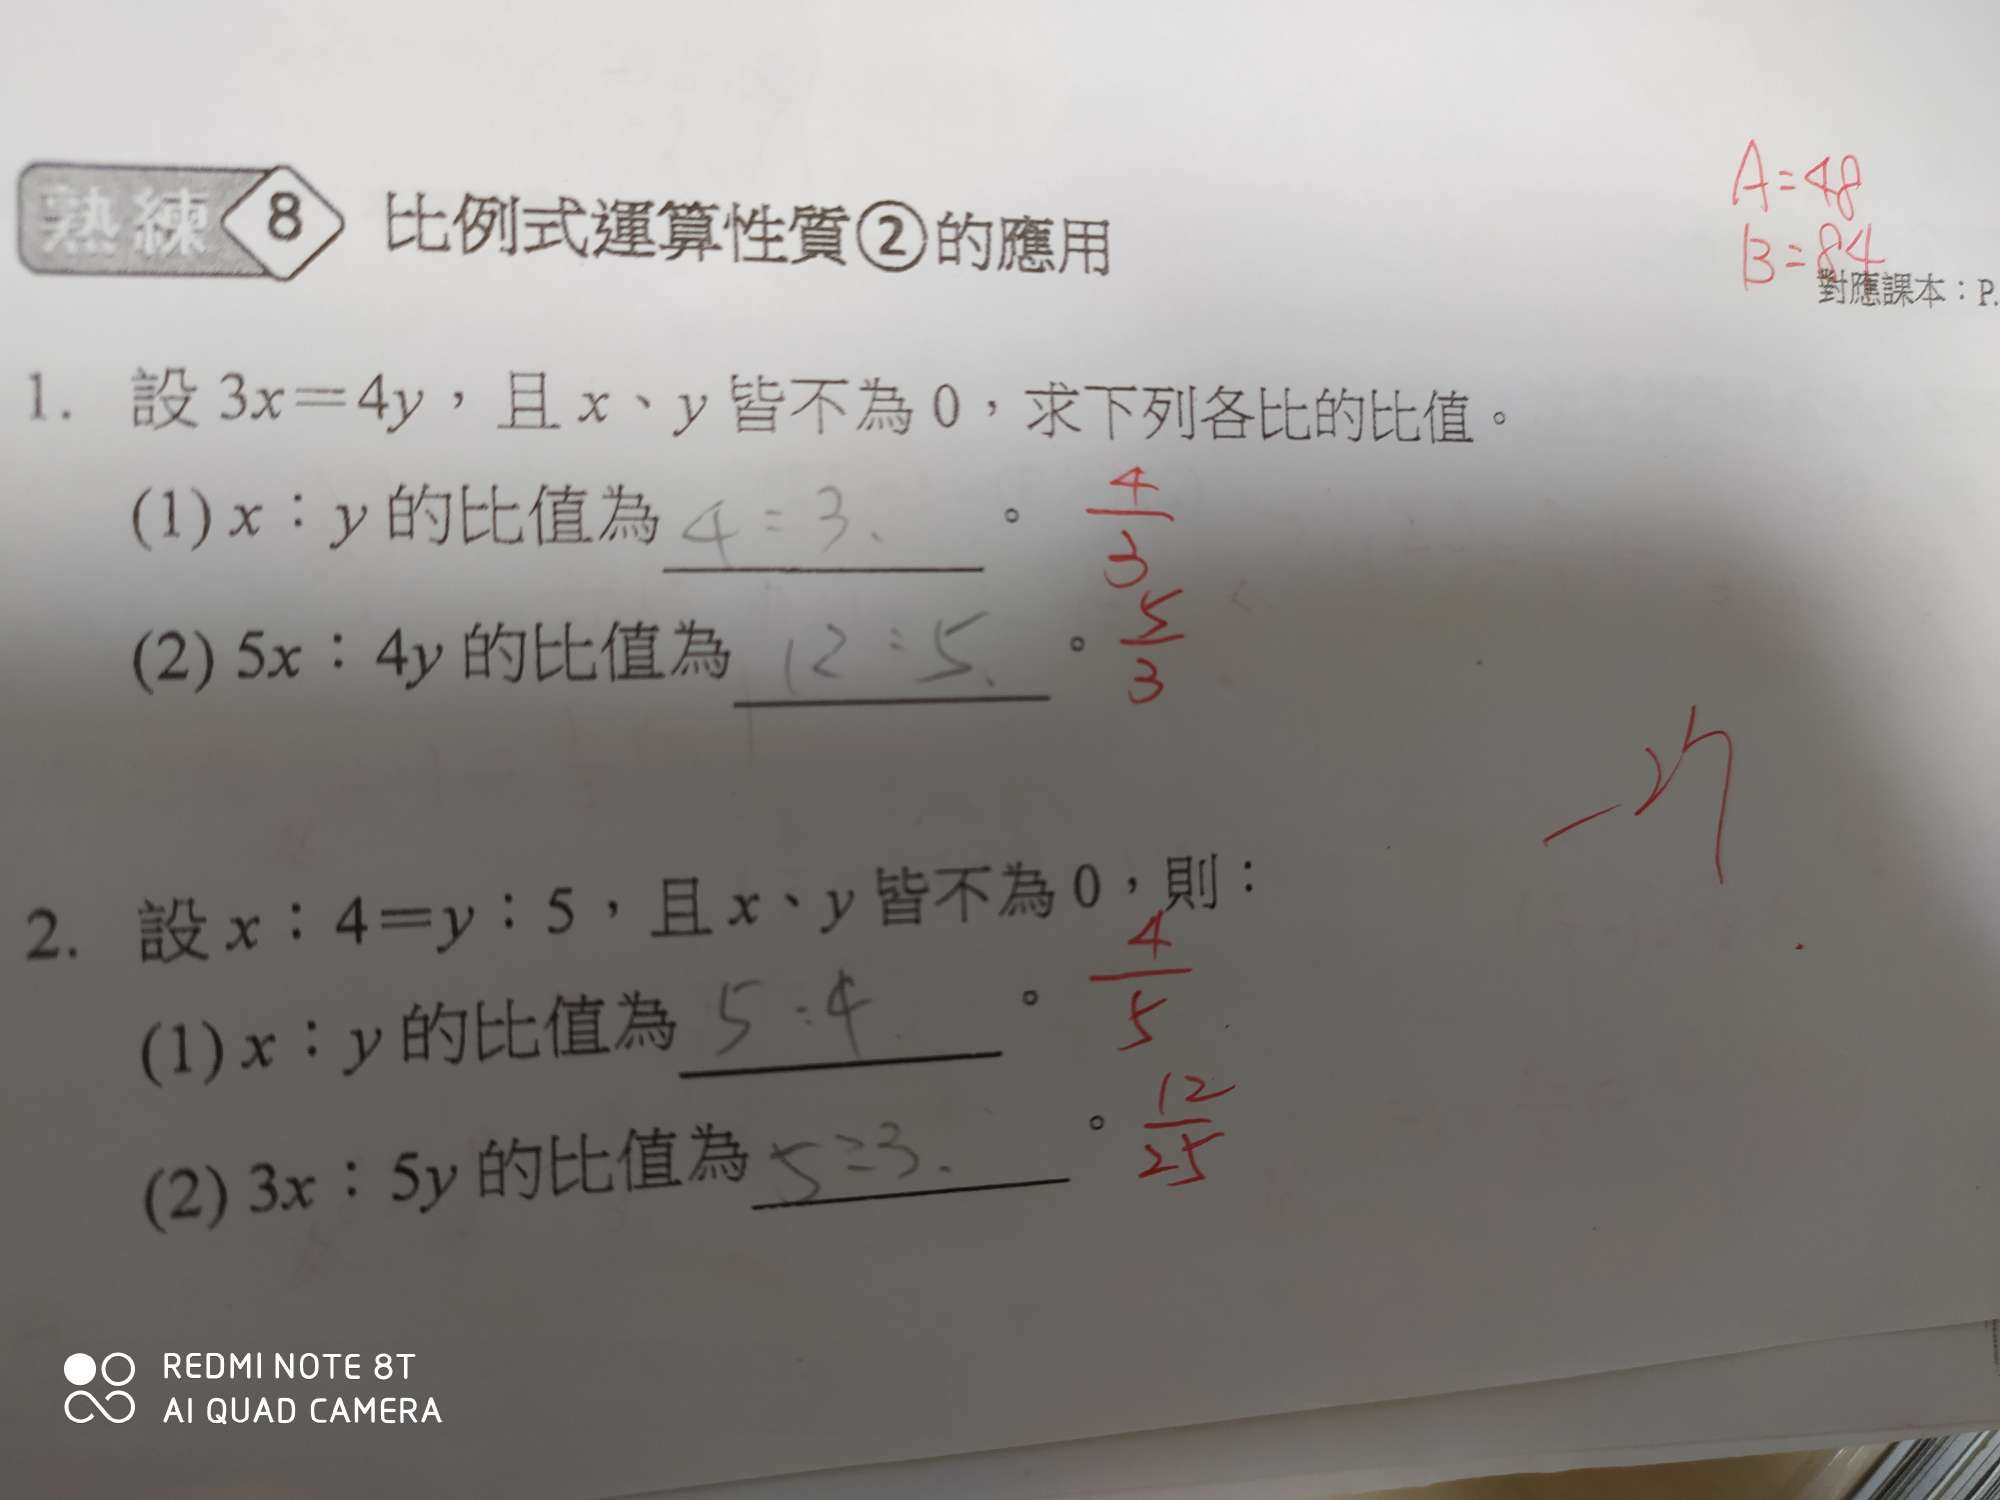 熟練 8 比例式運算性質②的應用
A=48
B=84
對應課本：P.
1. 設 3x＝4y，且 x、y 皆不為 0，求下列各比的比值。
(1) x：y 的比值為 4:3. 。 4/3
(2) 5x：4y 的比值為 12:5. 。 5/3
2. 設 x：4＝y：5，且 x、y 皆不為 0，則：
(1) x：y 的比值為 5:4. 。 4/5
(2) 3x：5y 的比值為 5:3. 。 12/25
REDMI NOTE 8T
AI QUAD CAMERA